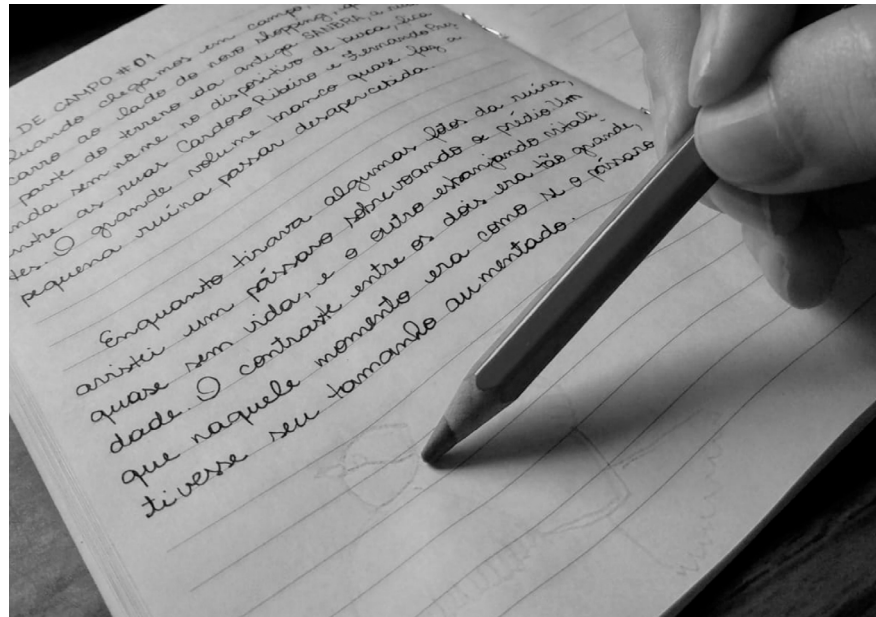 DE CAMPO #01
quando chegamos em campo,
carro ao lado do novo shopping,
parte do terreno da antiga SANBRA, a
sem nome no dispositivo de busca, fica
as ruas Cardoso Ribeiro e Fernando
O grande volume branco quase faz a
pequena ruína passar despercebida.
Enquanto tirava algumas fotos da ruína,
avistei um pássaro sobrevoando o prédio. Um
quase sem vida, e o outro esbanjando vitali-
dade. O contraste entre os dois era tão grande,
que naquele momento era como se o pássaro
tivesse seu tamanho aumentado.